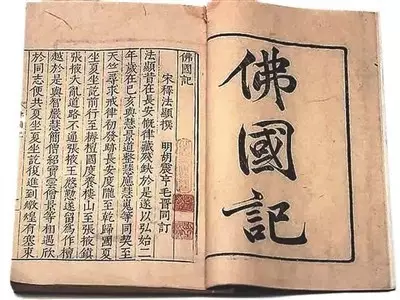 佛國記
佛國記
宋釋法顯撰 明胡震亨毛晉同訂
法顯昔在長安慨律藏殘缺於是遂以弘始二
年歲在己亥與慧景道整慧應慧嵬等同契至
天竺尋求戒律初發跡長安度隴至乾歸國夏
坐夏坐訖前行至耨檀國度養樓山至張掖鎮
張掖大亂道路不通張掖王慇懃遂留為作檀
越於是與智嚴慧簡僧紹寶雲僧景等相遇欣
於同志便共夏坐夏坐訖復進到燉煌有塞東